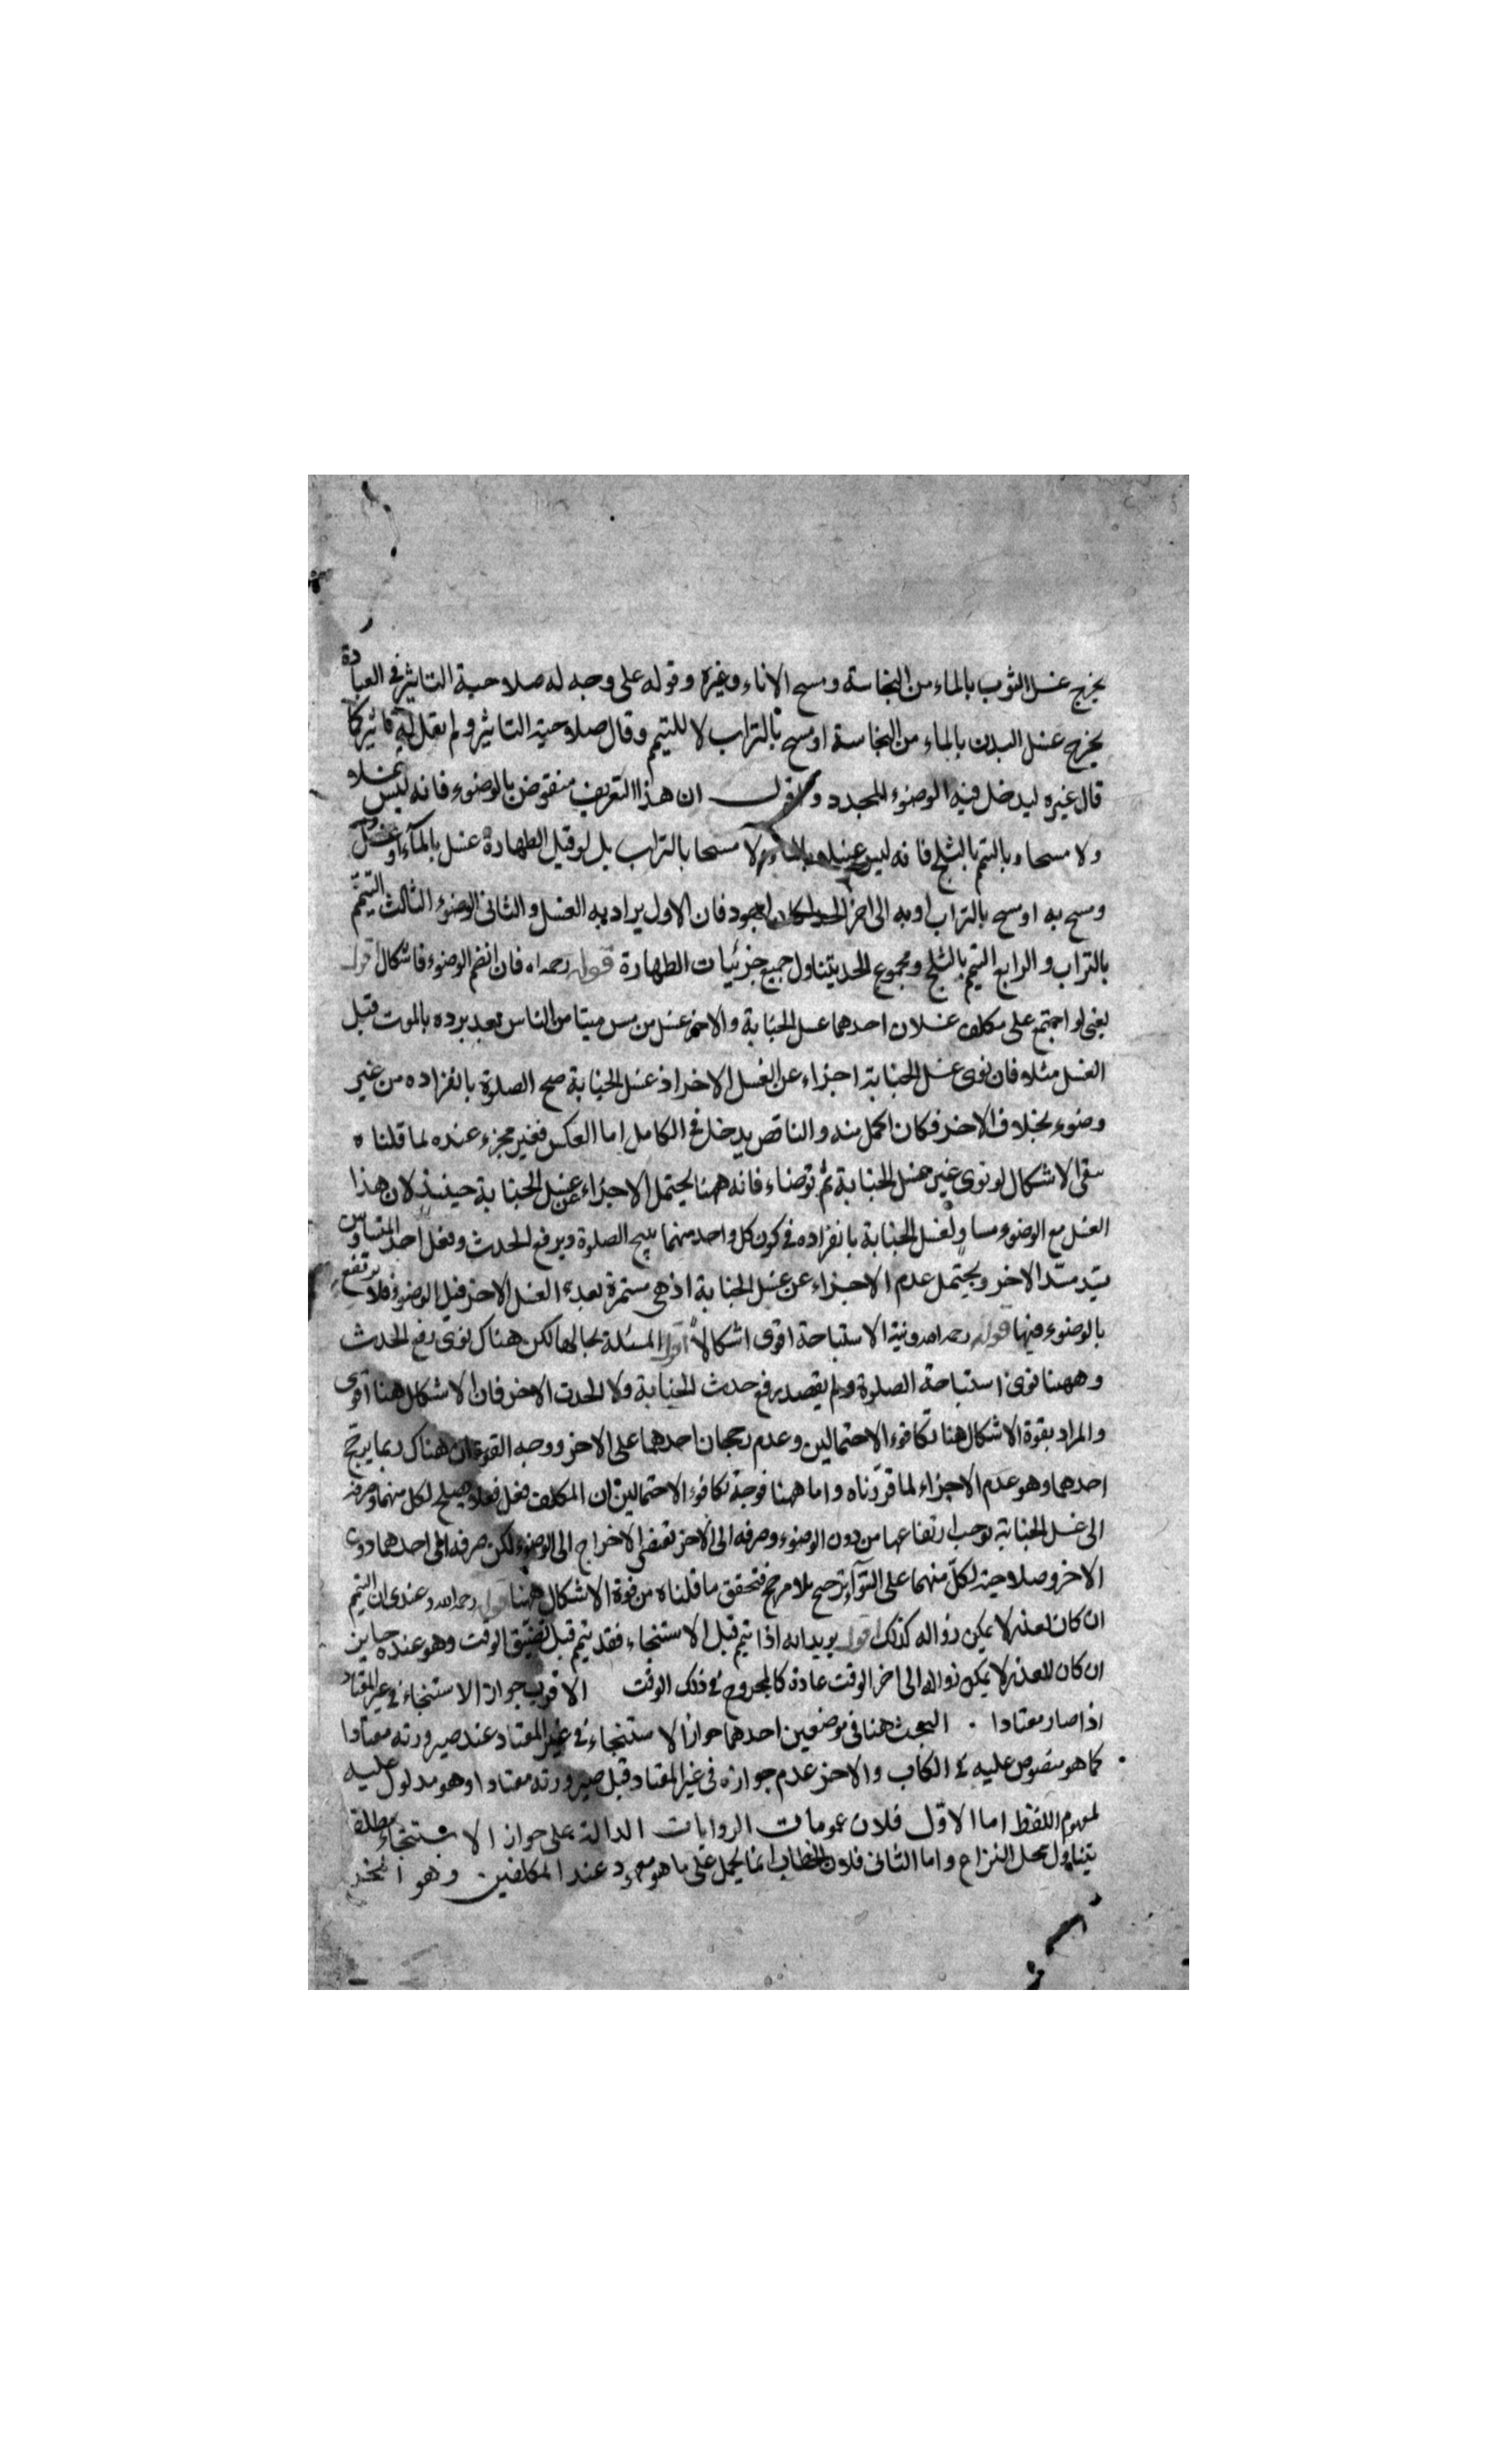 يخرج غسل الثوب بالماء من النجاسة ومسح الاناء وغيره وقوله على وجه له صلاحية التاثير في العبادة
يخرج غسل البدن بالماء من النجاسة او مسح بالتراب لا للتيمم وقال صلاحية التاثير ولم يقل تاثير كما
قال غيره ليدخل فيه الوضوء المجدد واقول ان هذا التعريف منقوض بالوضوء فانه ليس غسلا
ولا مسحا وبالتيمم بالثلج فانه ليس غسلا بالماء ولا مسحا بالتراب بل لو قيل الطهارة غسل بالماء او غسل
ومسح به او مسح بالتراب او به الى اخر الحد لكان اجود فان الاول يراد به الغسل والثاني الوضوء الثالث التيمم
بالتراب والرابع التيمم بالثلج ومجموع الحد يتناول جميع جزئيات الطهارة قوله رحمه اه فان انضم الوضوء فاشكال اقول
يعني لو اجتمع على مكلف غسلان احدهما غسل الجنابة والاخر غسل من مس ميتا من الناس بعد برده بالموت قبل
الغسل مثلا فان نوى غسل الجنابة اجزاء عن الغسل الاخر اذ غسل الجنابة صح الصلوة بانفراده من غير
وضوء بخلاف الاخر فكان اكمل منه والناقص يدخل في الكامل اما العكس فغير مجزء عنده لما قلناه
بقى الاشكال لو نوى غير غسل الجنابة ثم توضاء فانه ههنا يحتمل الاجزاء عن غسل الجنابة حينئذ لان هذا
الغسل مع الوضوء مساو لغسل الجنابة بانفراده في كون كل واحد منهما يبيح الصلوة ويرفع الحدث وفعل احد المتساويين
يسد مسد الاخر ويحتمل عدم الاجزاء عن غسل الجنابة اذ هي مستمرة بعد الغسل الاخر قبل الوضوء فلا يرتفع
بالوضوء فيها قوله رحمه اه ونية الاستباحة اقوى اشكالا اقول المسئلة بحالها لكن هناك نوى رفع الحدث
وههنا نوى استباحة الصلوة ولم يقصد رفع حدث الجنابة ولا الحدث الاخر فان الاشكال هنا اقوى
والمراد بقوة الاشكال هنا تكافوء الاحتمالين وعدم رجحان احدهما على الاخر ووجه القوة ان هناك ربما يرجح
احدهما وهو عدم الاجزاء لما قررناه واما ههنا فوجه تكافوء الاحتمالين ان المكلف فعل فعلا يصلح لكل منهما وصرفه
الى غسل الجنابة يوجب ارتفاعها من دون الوضوء وصرفه الى الاخر تقتضي الاخراج الى الوضوء لكن صرفه الى احدهما دون
الاخر وصلاحيته لكل منهما على السواء ترجيح بلا مرجح فتحقق ما قلناه من قوة الاشكال ههنا قوله رحمه الله وعندى ان التيمم
ان كان لعذر لا يمكن زواله كذلك اقول يريد انه اذا تيمم قبل الاستنجاء فقد تيمم قبل تضيق الوقت وهو عنده جايز
ان كان للعذر لا يمكن زواله الى اخر الوقت عادة كالمجروح في ذلك الوقت الاقرب جواز الاستنجاء في غير المعتاد
اذا صار معتادا . البحث هنا في موضعين احدهما جواز الاستنجاء في غير المعتاد عند صيرورته معتادا
كما هو منصوص عليه في الكتاب والاخر عدم جوازه في غير المعتاد قبل صيرورته معتادا وهو مدلول عليه
لمفهوم اللفظ اما الاول فلان عمومات الروايات الدالة على جواز الاستنجاء مطلقا
يتناول محل النزاع واما الثاني فلان الخطاب انما يحمل على ما هو معهود عند المكلفين وهو